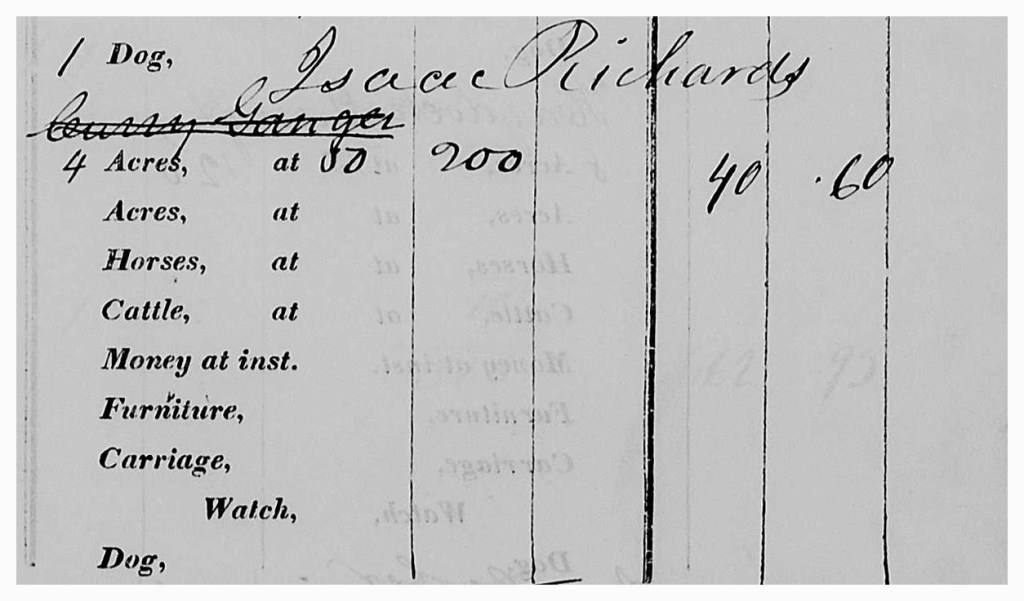 1 Dog, Isaac Richards
4 Acres, at 50 200 40 .60
Acres, at
Horses, at
Cattle, at
Money at inst.
Furniture,
Carriage,
Watch,
Dog,